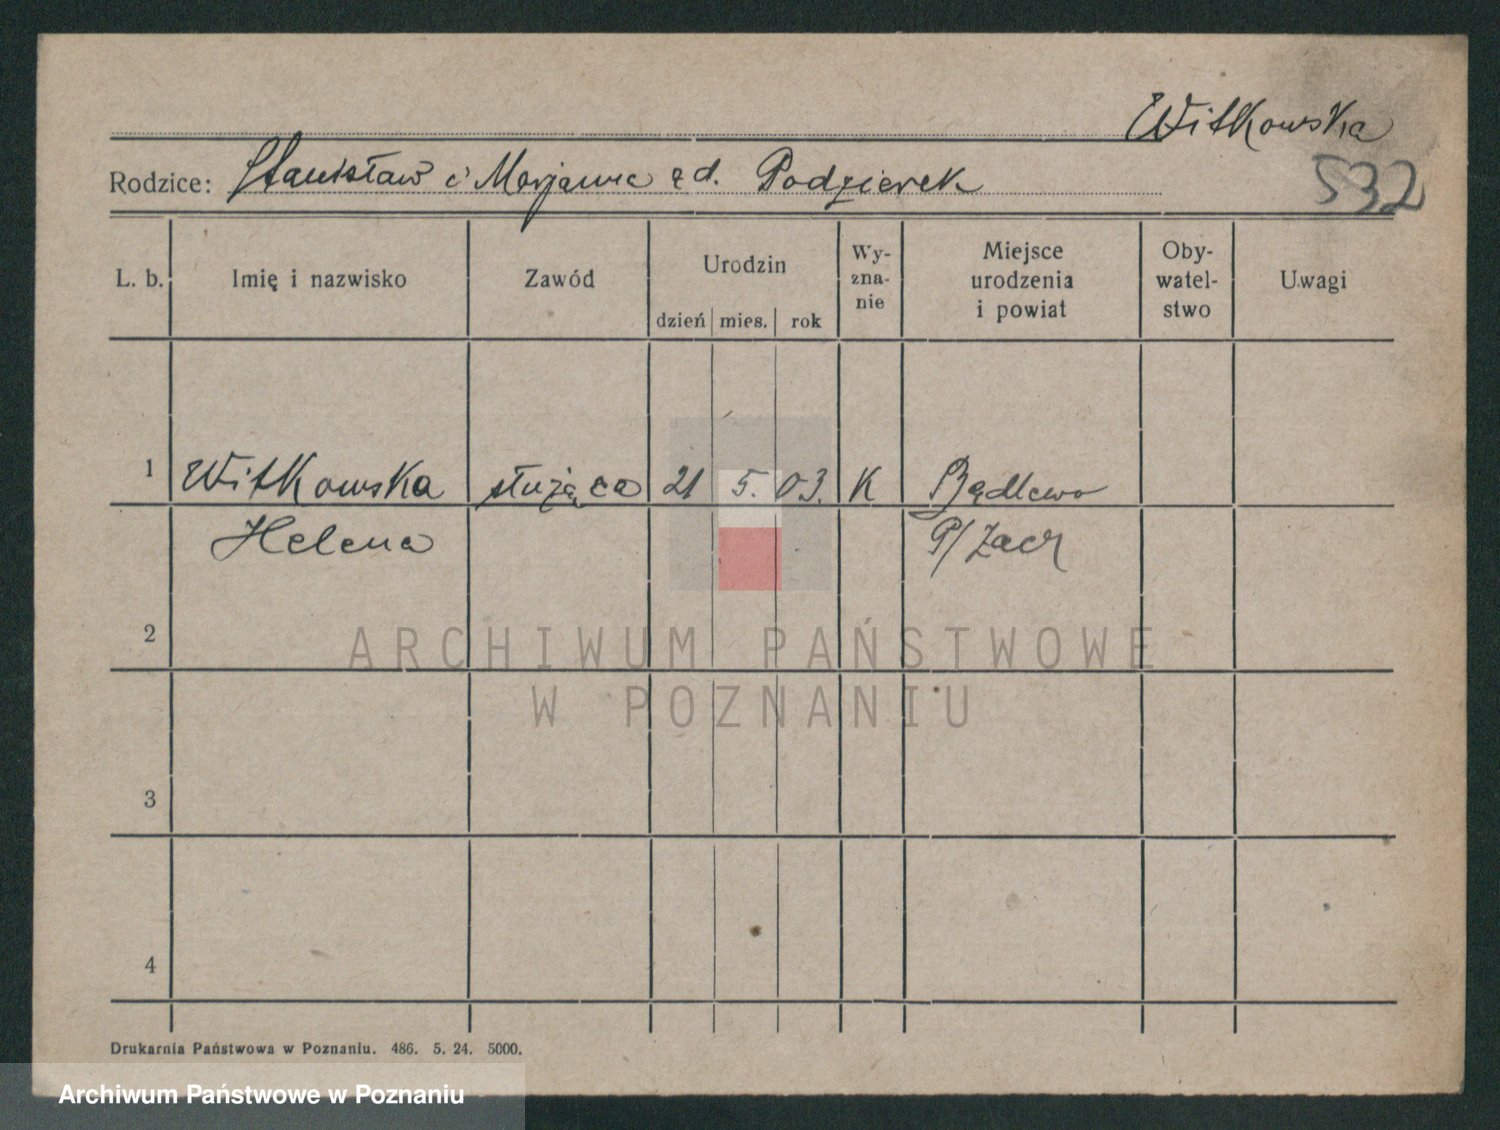 Witkowska
Rodzice: Stanisław i Marjanna z d. Podzierek
532
L. b.
Imię i nazwisko
Zawód
Urodzin
dzień mies. rok
Wy-
zna-
nie
Miejsce
urodzenia
i powiat
Oby-
watel-
stwo
Uwagi
1 Witkowska służąca 21 5. 03. K Bądlewo
Helena P/
2
3
4
ARCHIWUM PAŃSTWOWE
W POZNANIU
Drukarnia Państwowa w Poznaniu. 486. 5. 24. 5000.
Archiwum Państwowe w Poznaniu